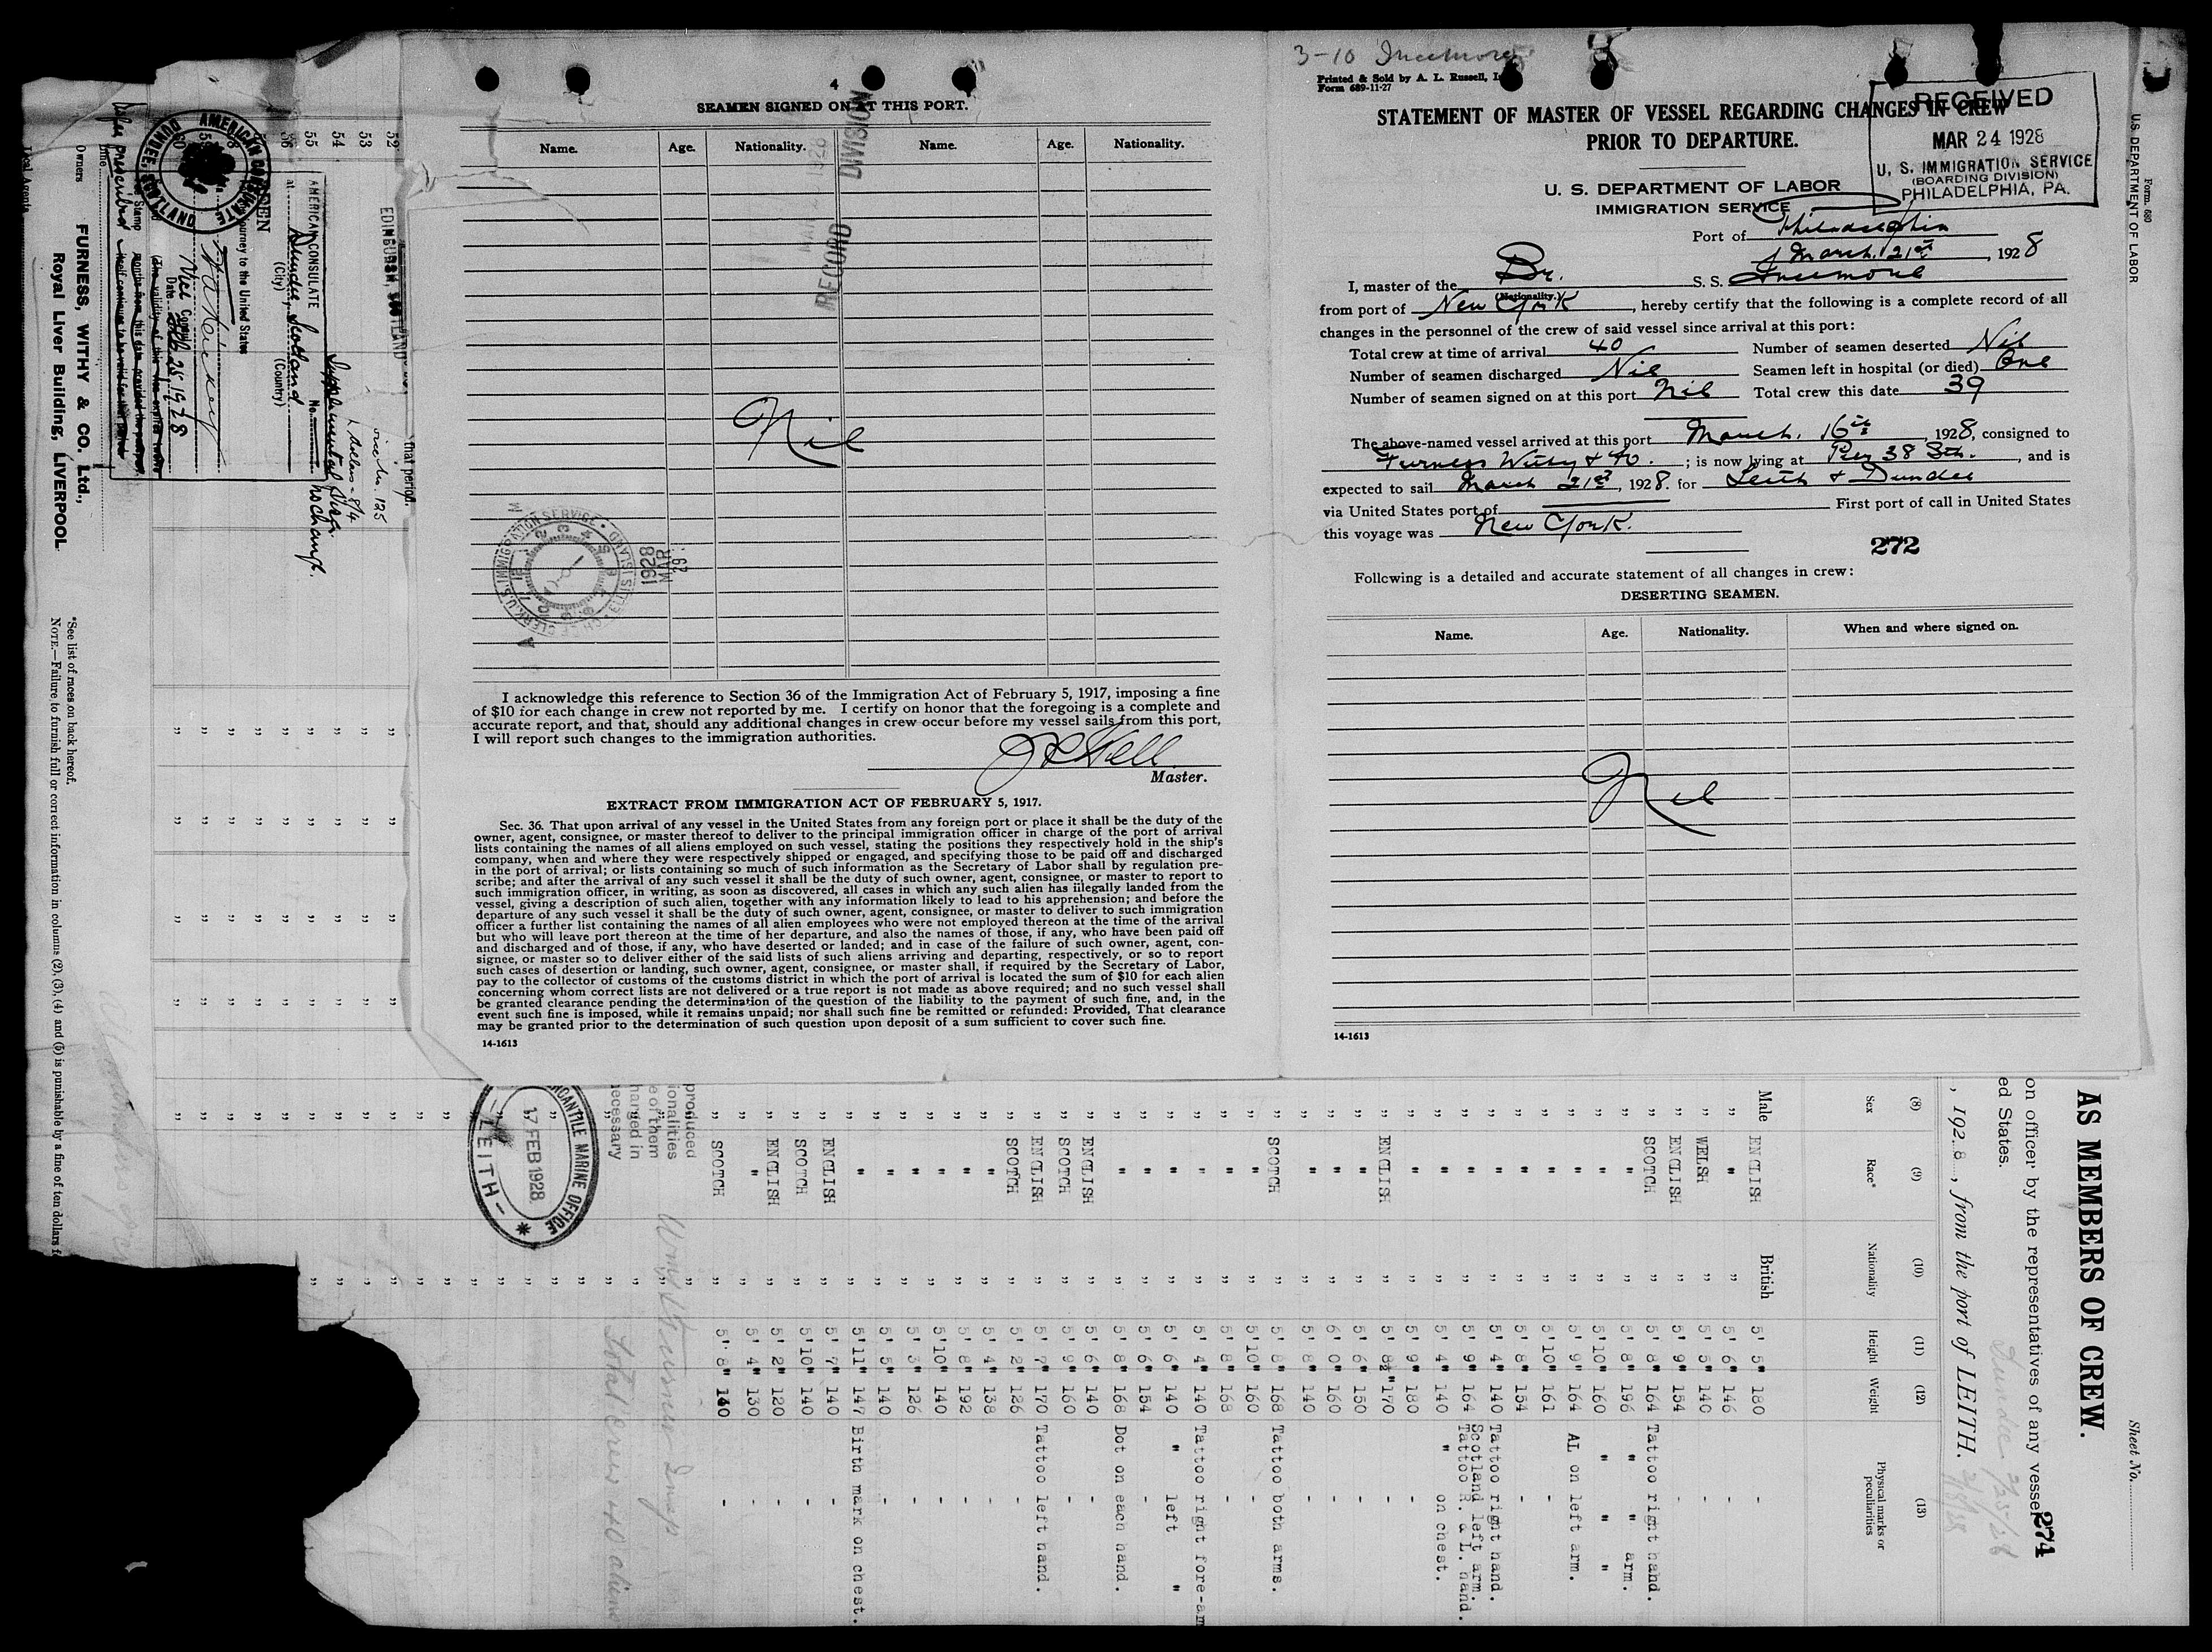 4
SEAMEN SIGNED ON AT THIS PORT.
Name. Age. Nationality. Name. Age. Nationality.
RECORD DIVISION
Nil
U.S. IMMIGRATION SERVICE
ELLIS ISLAND
1928
MAR
29
I acknowledge this reference to Section 36 of the Immigration Act of February 5, 1917, imposing a fine
of $10 for each change in crew not reported by me. I certify on honor that the foregoing is a complete and
accurate report, and that, should any additional changes in crew occur before my vessel sails from this port,
I will report such changes to the immigration authorities.
Master.
EXTRACT FROM IMMIGRATION ACT OF FEBRUARY 5, 1917.
Sec. 36. That upon arrival of any vessel in the United States from any foreign port or place it shall be the duty of the
owner, agent, consignee, or master thereof to deliver to the principal immigration officer in charge of the port of arrival
lists containing the names of all aliens employed on such vessel, stating the positions they respectively hold in the ship's
company, when and where they were respectively shipped or engaged, and specifying those to be paid off and discharged
in the port of arrival; or lists containing so much of such information as the Secretary of Labor shall by regulation pre-
scribe; and after the arrival of any such vessel it shall be the duty of such owner, agent, consignee, or master to report to
such immigration officer, in writing, as soon as discovered, all cases in which any such alien has illegally landed from the
vessel, giving a description of such alien, together with any information likely to lead to his apprehension; and before the
departure of any such vessel it shall be the duty of such owner, agent, consignee, or master to deliver to such immigration
officer a further list containing the names of all alien employees who were not employed thereon at the time of the arrival
but who will leave port thereon at the time of her departure, and also the names of those, if any, who have been paid off
and discharged and of those, if any, who have deserted or landed; and in case of the failure of such owner, agent, con-
signee, or master so to deliver either of the said lists of such aliens arriving and departing, respectively, or so to report
such cases of desertion or landing, such owner, agent, consignee, or master shall, if required by the Secretary of Labor,
pay to the collector of customs of the customs district in which the port of arrival is located the sum of $10 for each alien
concerning whom correct lists are not delivered or a true report is not made as above required; and no such vessel shall
be granted clearance pending the determination of the question of the liability to the payment of such fine, and, in the
event such fine is imposed, while it remains unpaid; nor shall such fine be remitted or refunded: Provided, That clearance
may be granted prior to the determination of such question upon deposit of a sum sufficient to cover such fine.
14-1613
3-10 Incemore
Printed & Sold by A. L. Russell,
Form 689-11-27
STATEMENT OF MASTER OF VESSEL REGARDING CHANGES IN CREW
PRIOR TO DEPARTURE.
RECEIVED
MAR 24 1928
U. S. IMMIGRATION SERVICE
(BOARDING DIVISION)
PHILADELPHIA, PA.
U. S. DEPARTMENT OF LABOR
IMMIGRATION SERVICE
Port of Philadelphia
March 21st, 1928
I, master of the Br. S. S. Incemore
(Nationality.)
from port of New York, hereby certify that the following is a complete record of all
changes in the personnel of the crew of said vessel since arrival at this port:
Total crew at time of arrival 40 Number of seamen deserted Nil
Number of seamen discharged Nil Seamen left in hospital (or died) One
Number of seamen signed on at this port Nil Total crew this date 39
The above-named vessel arrived at this port March. 16th 1928, consigned to
Furness Withy & Co.; is now lying at Pier 38 Sth., and is
expected to sail March 21st, 1928. for Leith & Dundee
via United States port of First port of call in United States
this voyage was New York.
272
Following is a detailed and accurate statement of all changes in crew:
DESERTING SEAMEN.
Name. Age. Nationality. When and where signed on.
Nil
14-1613
Form 680
U.S. DEPARTMENT OF LABOR
Sheet No.
AS MEMBERS OF CREW.
274
on officer by the representatives of any vessel
ed States.
, 1928, from the port of LEITH.
(8) (9) (10) (11) (12) (13)
Sex Race* Nationality Height Weight Physical marks or peculiarities
Male ENGLISH British 5' 5" 180 -
" " " 5' 6" 146 -
" WELSH " 5' 5" 140 -
" ENGLISH " 5' 9" 154 -
" SCOTCH " 5' 8" 164 Tattoo right hand.
" " " 5' 8" 196 " " arm.
" " " 5'10" 160 " " "
" " " 5' 9" 164 AL on left arm.
" " " 5'10" 161 -
" " " 5' 8" 154 -
" " " 5' 4" 140 Tattoo right hand.
Scotland left arm.
" " " 5' 9" 164 Tattoo R. & L. hand.
" " " 5' 4" 140 " on chest.
" " " 5' 9" 180 -
" ENGLISH " 5' 8½" 170 -
" " " 5' 6" 150 -
" " " 6' 0" 160 -
" " " 5' 8" 140 -
" SCOTCH " 5' 8" 168 Tattoo both arms.
" " " 5'10" 160 -
" " " 5' 8" 168 -
" " " 5' 4" 140 Tattoo right fore-arm
" " " 5' 6" 140 " left "
" " " 5' 6" 154 -
" " " 5' 8" 168 Dot on each hand.
" ENGLISH " 5' 6" 140 -
" SCOTCH " 5' 9" 160 -
" ENGLISH " 5' 7" 170 Tattoo left hand.
" SCOTCH " 5' 2" 126 -
" " " 5' 4" 138 -
" " " 5' 8" 192 -
" " " 5'10" 140 -
" " " 5' 3" 126 -
" " " 5' 5" 140 -
" " " 5'11" 147 Birth mark on chest.
" ENGLISH " 5' 7" 140 -
" SCOTCH " 5'10" 140 -
" ENGLISH " 5' 2" 120 -
" " " 5' 4" 130 -
" SCOTCH " 5' 8" 140 -
produced
ionalities
e of them
hanged in
ecessary
Total crew 40 aliens
MERCANTILE MARINE OFFICE
17 FEB 1928
LEITH
that period.
EDINBURGH, SCOTLAND
52
53
54
55
56
Supplemental Visa.
No change.
AMERICAN CONSULATE
at Dundee, Scotland
(City) (Country)
journey to the United States
Date Feb 25 1928
AMERICAN CONSULATE
DUNDEE, SCOTLAND
Owners FURNESS, WITHY & CO. Ltd.,
Royal Liver Building, LIVERPOOL
Local Agents
*See list of races on back hereof.
NOTE.—Failure to furnish full or correct information in columns (2), (3), (4) and (5) is punishable by a fine of ten dollars